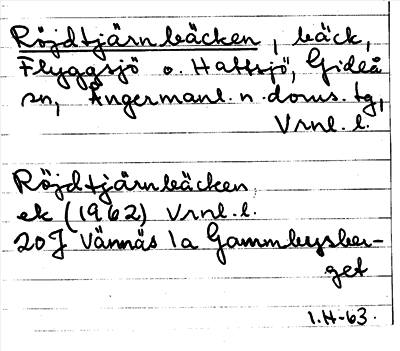 Röjdtjärnbäcken, bäck,
Flyggsjö o. Hattsjö, Gideå
sn, Ångermanl. n. doms. tg,
Vrnl. l.
Röjdtjärnbäcken,
ek (1962) Vrnl. l.
20J Vännäs 1a Gammbysber-
get
1.H-63.